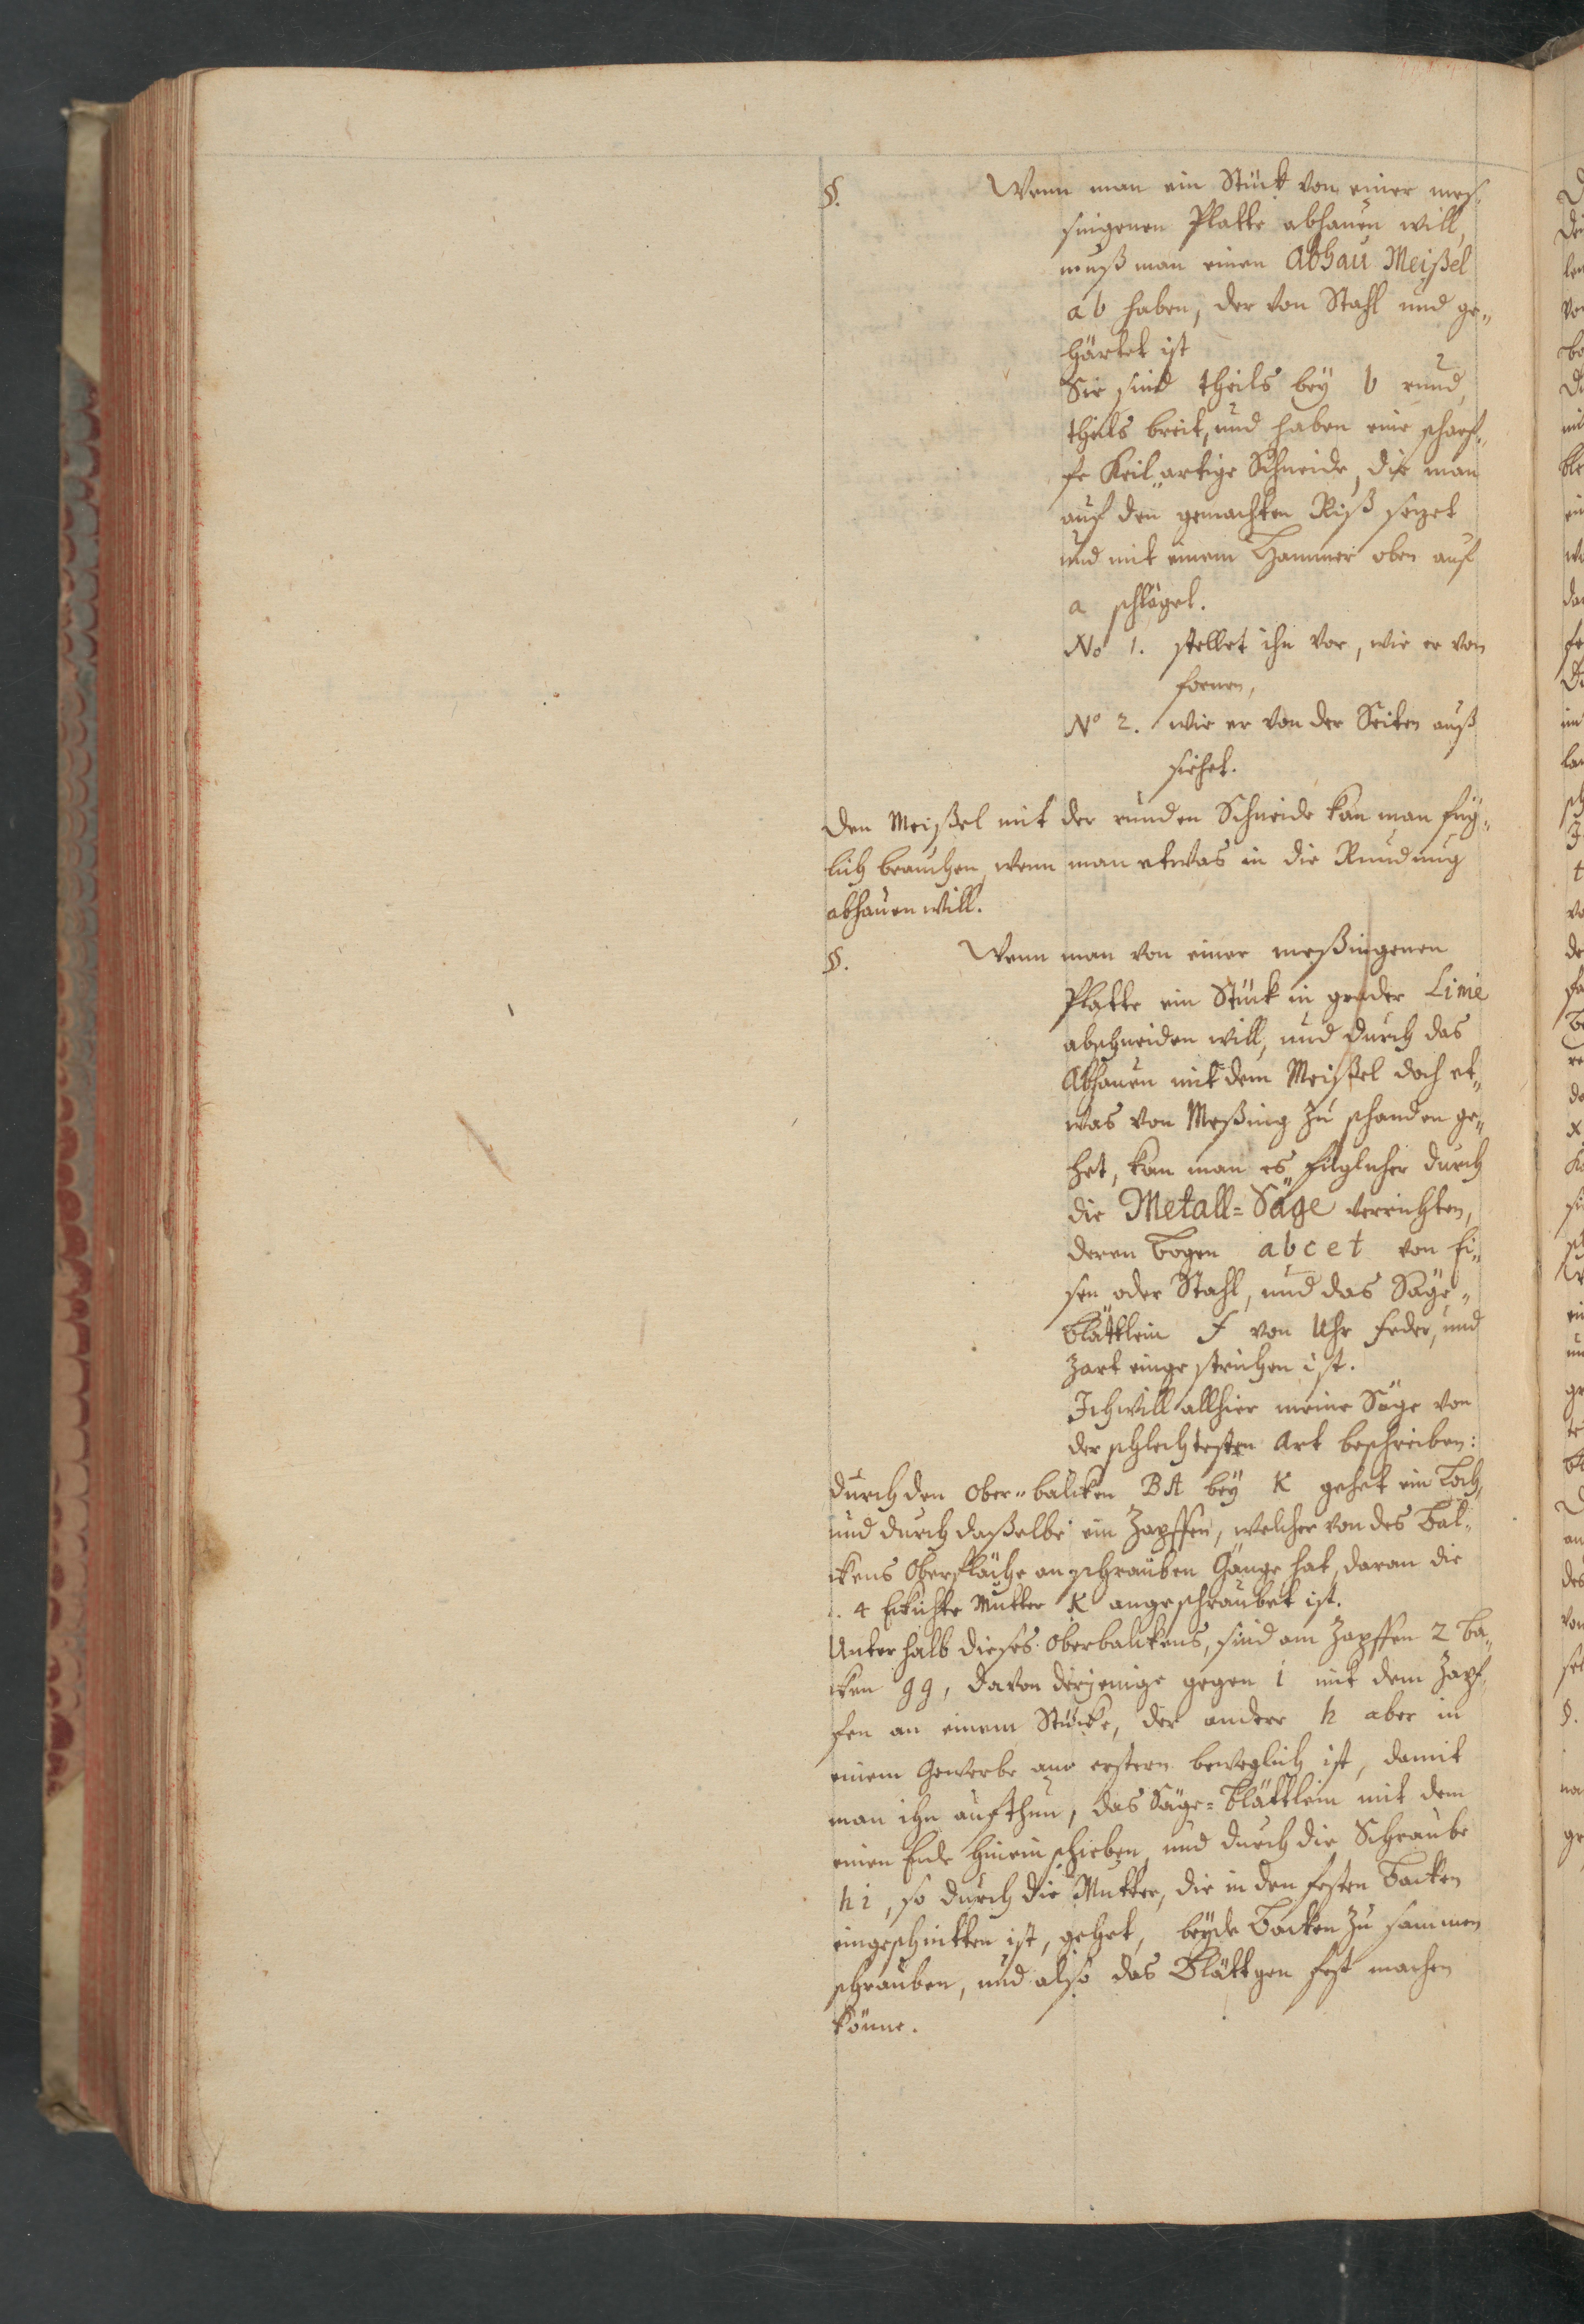 §. Wenn man ein Stück von einer mes-
singenen Platte abhauen will,
muß man einen Abhau Meißel
a b haben, der von Stahl und ge-
härtet ist
Sie sind theils bey b rund,
theils breit, und haben eine scharf-
fe Keil-artige Schneide, die man
auf den gemachten Riß setzet
und mit einem Hammer oben auf
a schläget.
No 1. stellet ihn vor, wie er von
fornen,
No 2. wie er von der Seiten auß
siehet.
Den Meißel mit der runden Schneide kan man füg-
lich brauchen, wenn man etwas in die Rundung
abhauen will.
§. Wenn man von einer meßingenen
Platte ein Stück in grader Linie
abschneiden will, und durch das
Abhauen mit dem Meißel doch et-
was von Meßing zu schanden ge-
het, kan man es füglicher durch
die Metall-Säge verrichten,
deren Bogen a b c e t von Ei-
sen oder Stahl, und das Säge-
Blättlein F von Uhr Feder, und
zart eingestrichen ist.
Ich will allhier meine Säge von
der schlechtesten Art beschreiben:
durch den Ober-balcken B A bey K gehet ein Loch,
und durch daßelbe ein Zapffen, welcher von des Bal-
ckens Oberfläche an schrauben Gänge hat, daran die
4 Eckichte Mutter K angeschraubet ist.
Unterhalb dieses Oberbalckens, sind am Zapffen 2 Ba-
cken g g, davon derjenige gegen i mit dem Zapf-
fen an einem Stücke, der andere h aber in
einem Gewerbe am erstern beweglich ist, damit
man ihn aufthun, das Säge-Blättlein mit dem
einen Ende hinein schieben, und durch die Schraube
h i, so durch die Mutter, die in den festen Backen
eingeschnitten ist, gehet, beyde Backen zu sammen
schrauben, und also das Blättgen fest machen
könne.